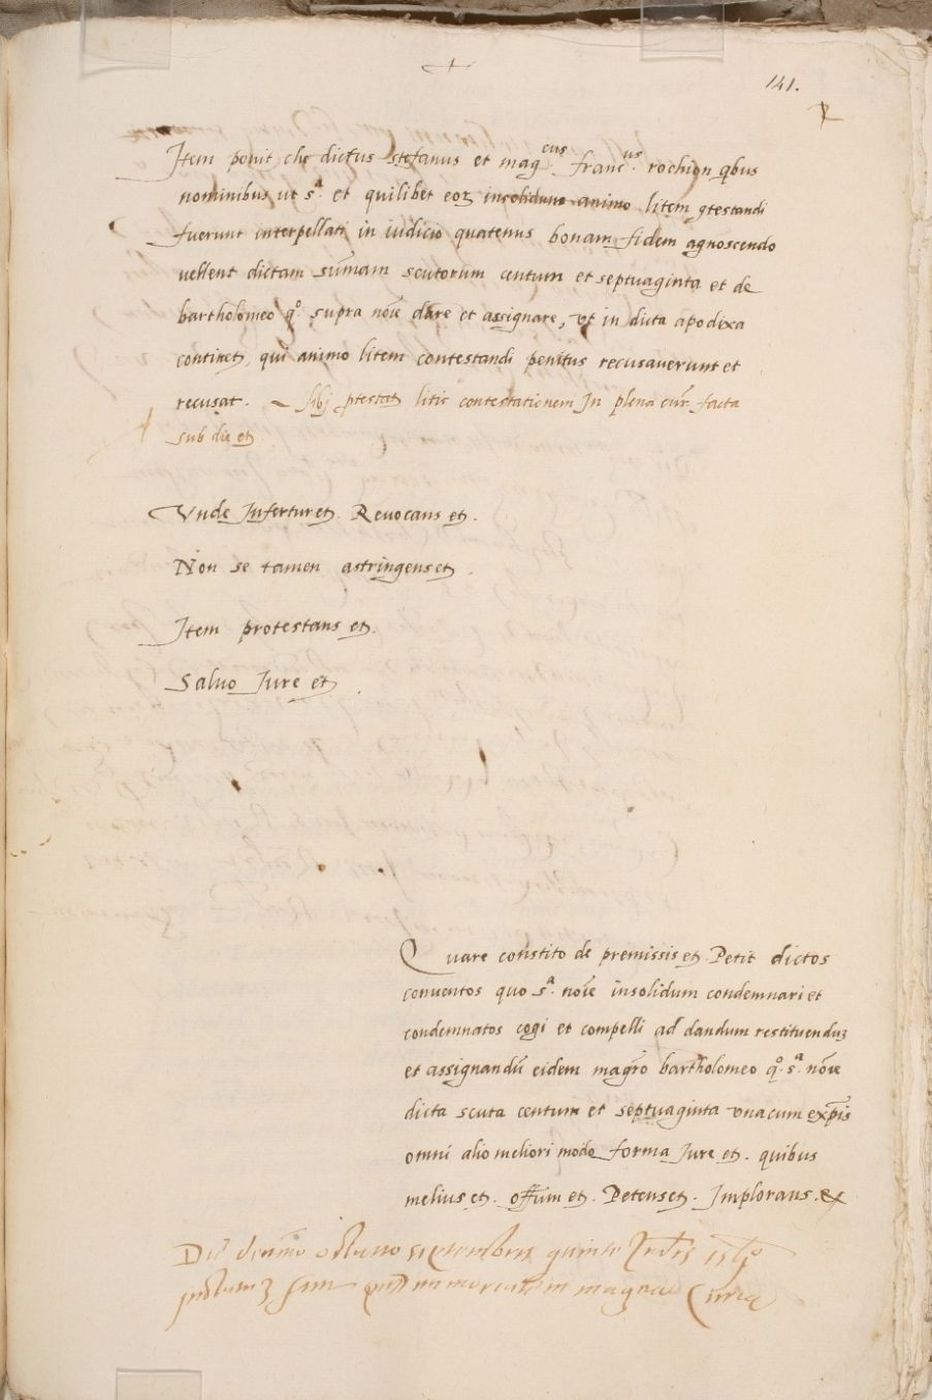 141.
Item ponit che dictus stefanus et mag^cus franc^us rochion qbus
nominibus ut s^a. et quilibet eoz insolidum animo litem gtestandi
fuerunt interpellati in iudicio quatenus bonam fidem agnoscendo
vellent dictam sumam scutorum centum et septuaginta et de
bartholomeo q^o. supra noie dare et assignare, ut in dicta apodixa
continet, qui animo litem contestandi penitus recusaverunt et
recusat. litis contestationem In plena cur facta
sub die et
Vnde Infertur et. Revocans et.
Non se tamen astringens et.
Item protestans et.
Salvo Iure et.
Quare constito de premissis et. Petit dictos
conventos quo s^a. noie insolidum condemnari et
condemnatos cogi et compelli ad dandum restituenduz
et assignandu eidem magro bartholomeo q^o. s^a. noie
dicta scuta centum et septuaginta vnacum expis
omni alio meliori modo forma Iure et. quibus
melius et. offium et. Petens et. Implorans. et
Die octavo quinte
magne Curie